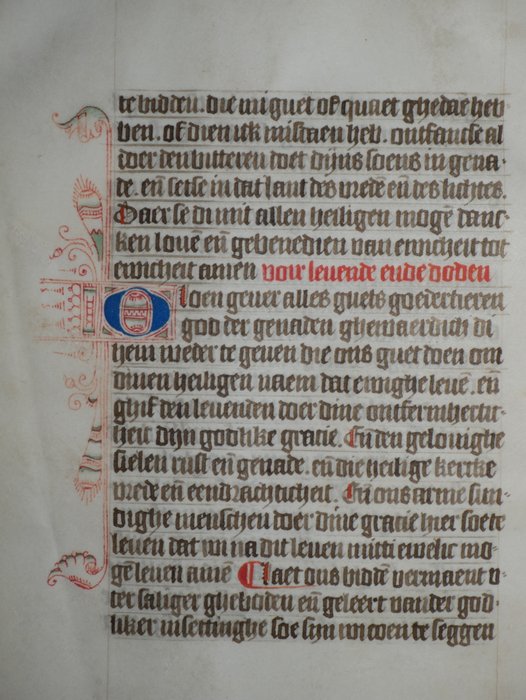 te bidden. die mi guet of quaet ghedaē heb
ben. of dien ick misdaen heb. ontfancse al
doer den bitteren doet dijns soens in gena-
de. eñ setse in dat lant des vredē eñ des lichtes.
Daer se di mit allen heiligen mogē danc-
ken louē eñ gebenedien van ewicheit tot
ewicheit amen voir leuende ende doden
O Gloen geuer alles guets goedertieren
god der genaden ghewaerdich di
hem weder te geuen die ons guet doen om
dinen heiligen naem dat ewighe leuē. eñ
ghif den leuenden doer dine ontfermherti-
heit dijn godlike gracie. Eñ den gelouighe
sielen rust eñ genade. eñ die heilige kercke
vrede eñ eendrachticheit. Eñ ons arme sun-
dighe menschen doer dine gracie hier soe te
leuen dat wi na dit leuen mitti ewelic mo-
gē leuen amē Laet ons biddē vermaent v-
ter saliger ghebođen eñ geleert van der god-
liker insettinghe soe sijn wi coen te seggen